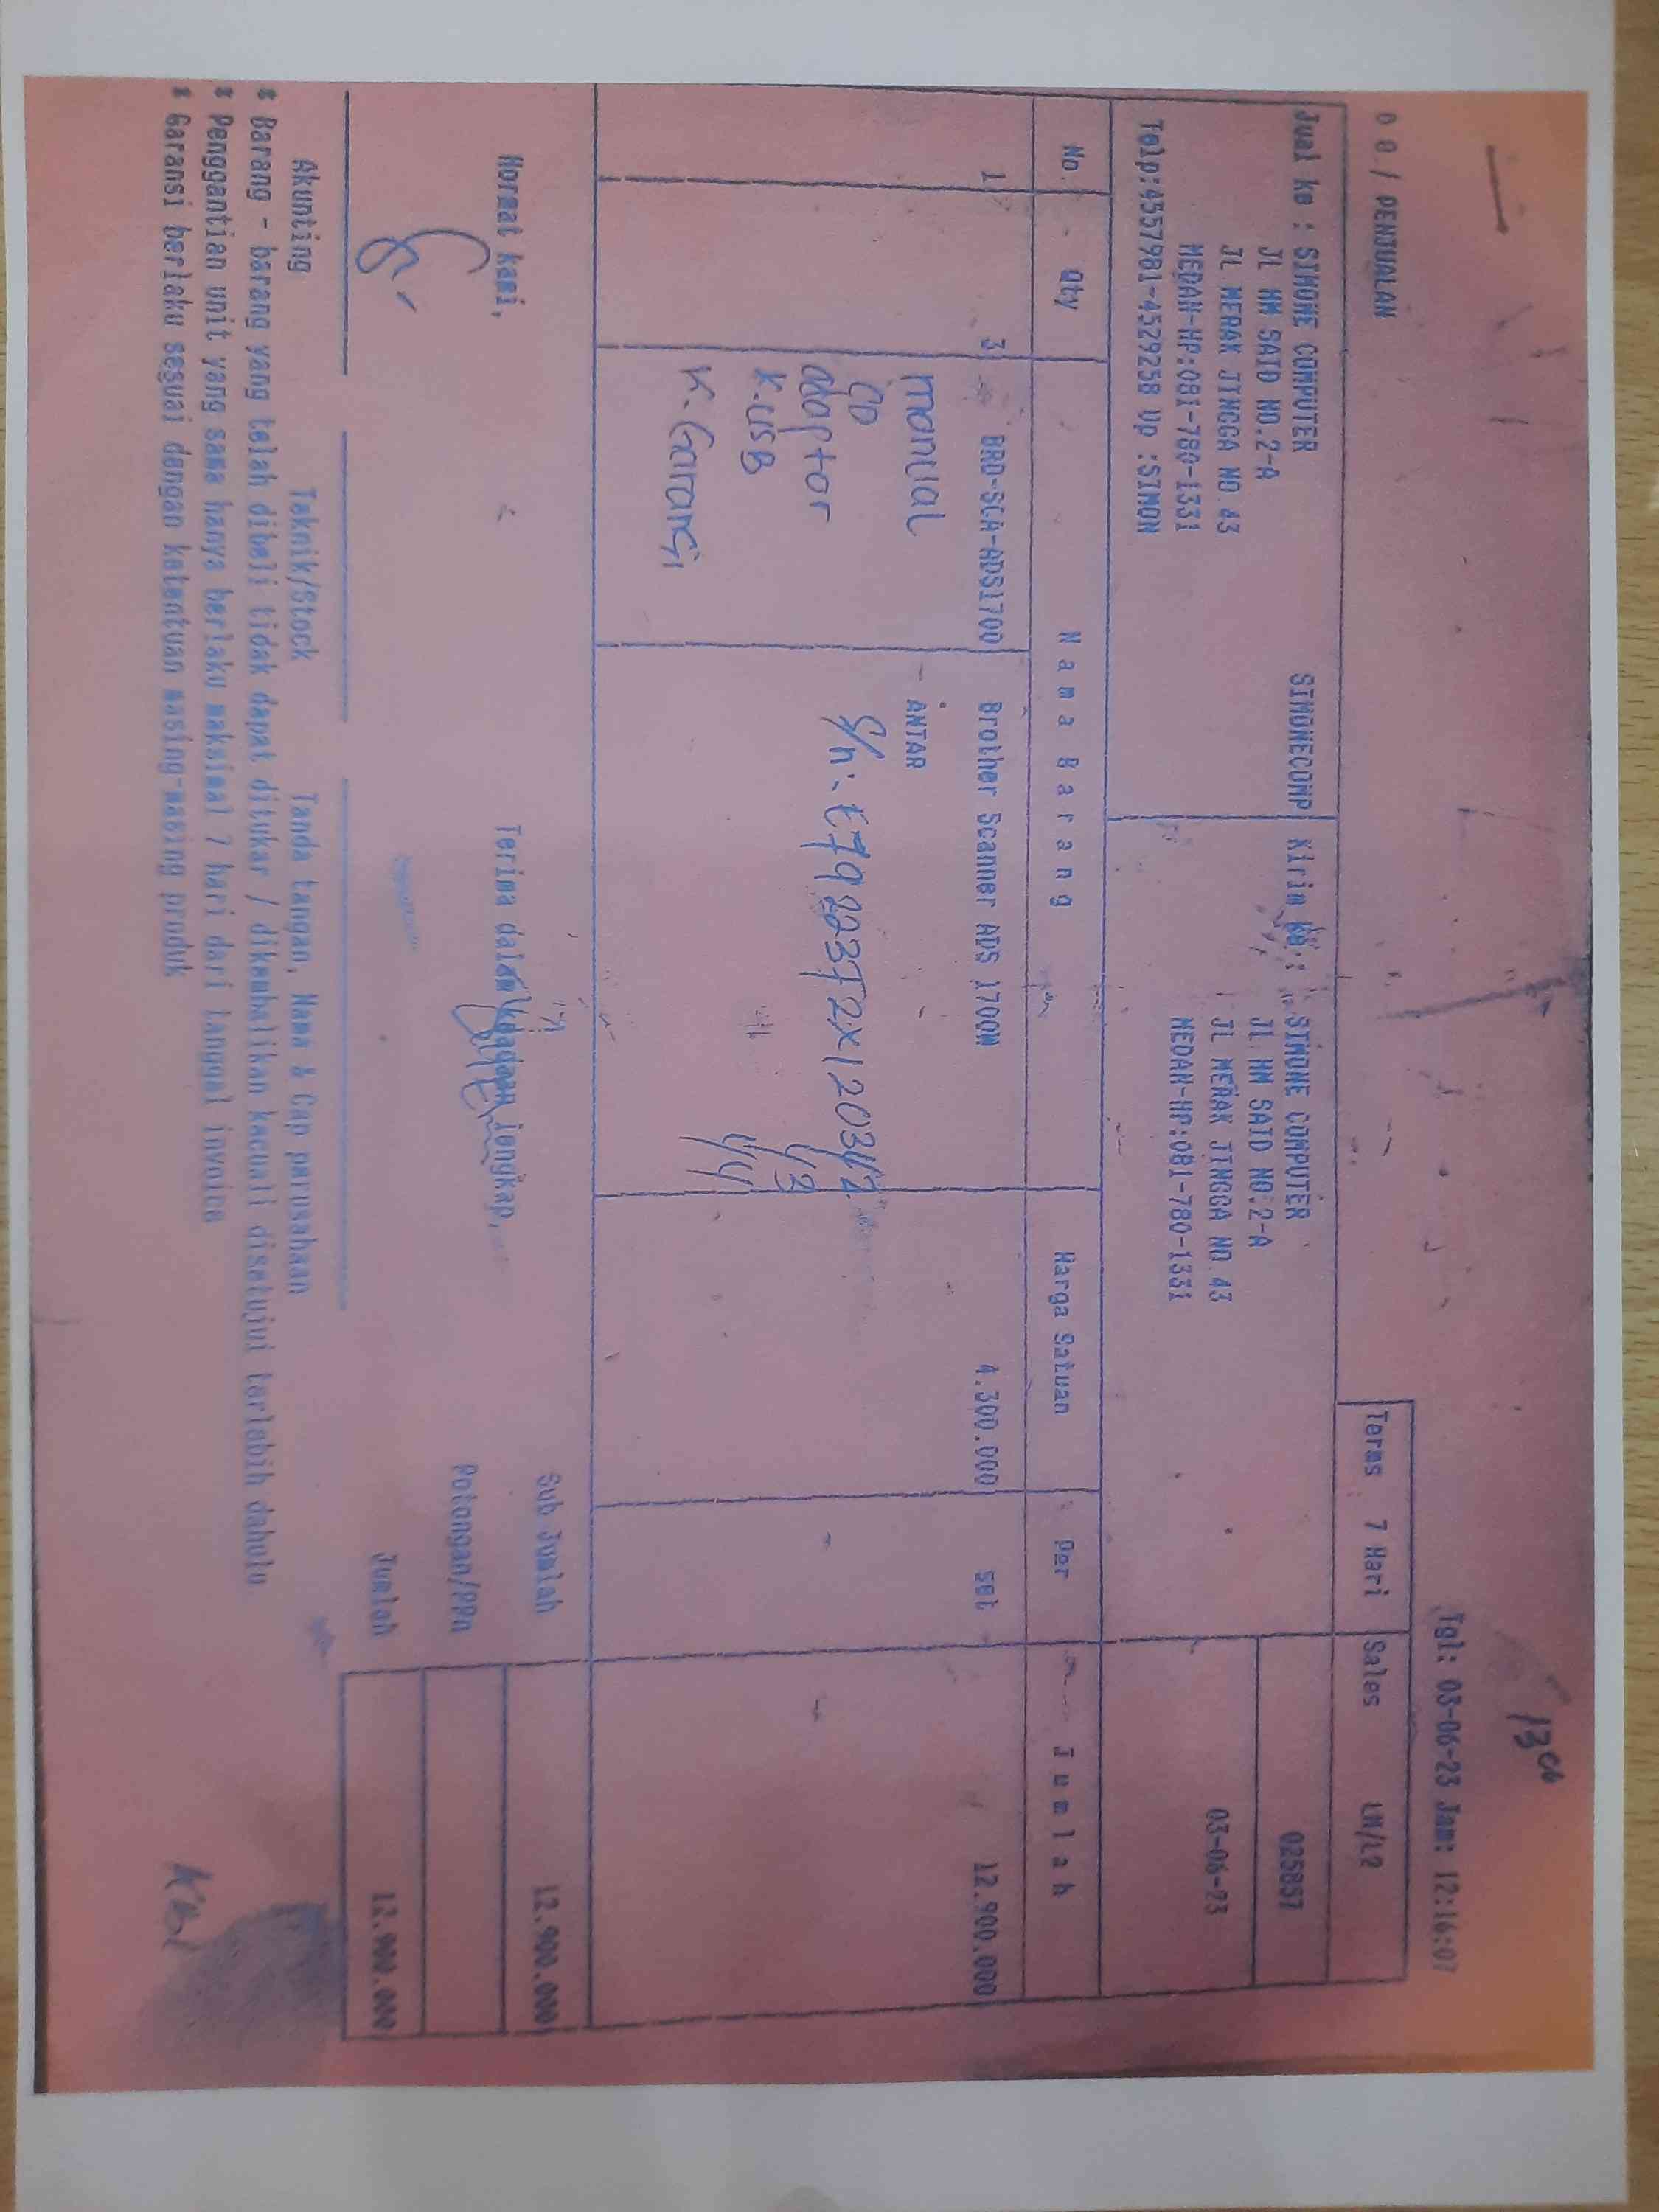 13 06
Tgl: 03-06-23 Jam: 12:16:07
0 0 / PENJUALAN
Terms 7 Hari Sales LM/L2
Jual ke : SIMONE COMPUTER SIMONECOMP
JL HM SAID NO.2-A
JL MERAK JINGGA NO 43
MEDAN-HP:081-780-1331
Telp:4557981-4529258 Up :SIMON
Kirim ke : SIMONE COMPUTER
JL HM SAID NO.2-A
JL MERAK JINGGA NO 43
MEDAN-HP:081-780-1331
025857
03-06-23
No. Qty Nama Barang Harga Satuan Per Jumlah
1 3 BRO-SCA-ADS1700 Brother Scanner ADS 1700W 4.300.000 set 12.900.000
manual ANTAR
CD
adaptor
K.USB
K.Garansi
Hormat kami,
Terima dalam keadaan lengkap,
Sub Jumlah 12.900.000
Potongan/PPn
Jumlah 12.900.000
Akunting Teknik/Stock Tanda tangan, Nama & Cap perusahaan
* Barang - barang yang telah dibeli tidak dapat ditukar / dikembalikan kecuali disetujui terlebih dahulu
* Penggantian unit yang sama hanya berlaku maksimal 7 hari dari tanggal invoice
* Garansi berlaku sesuai dengan ketentuan masing-masing produk